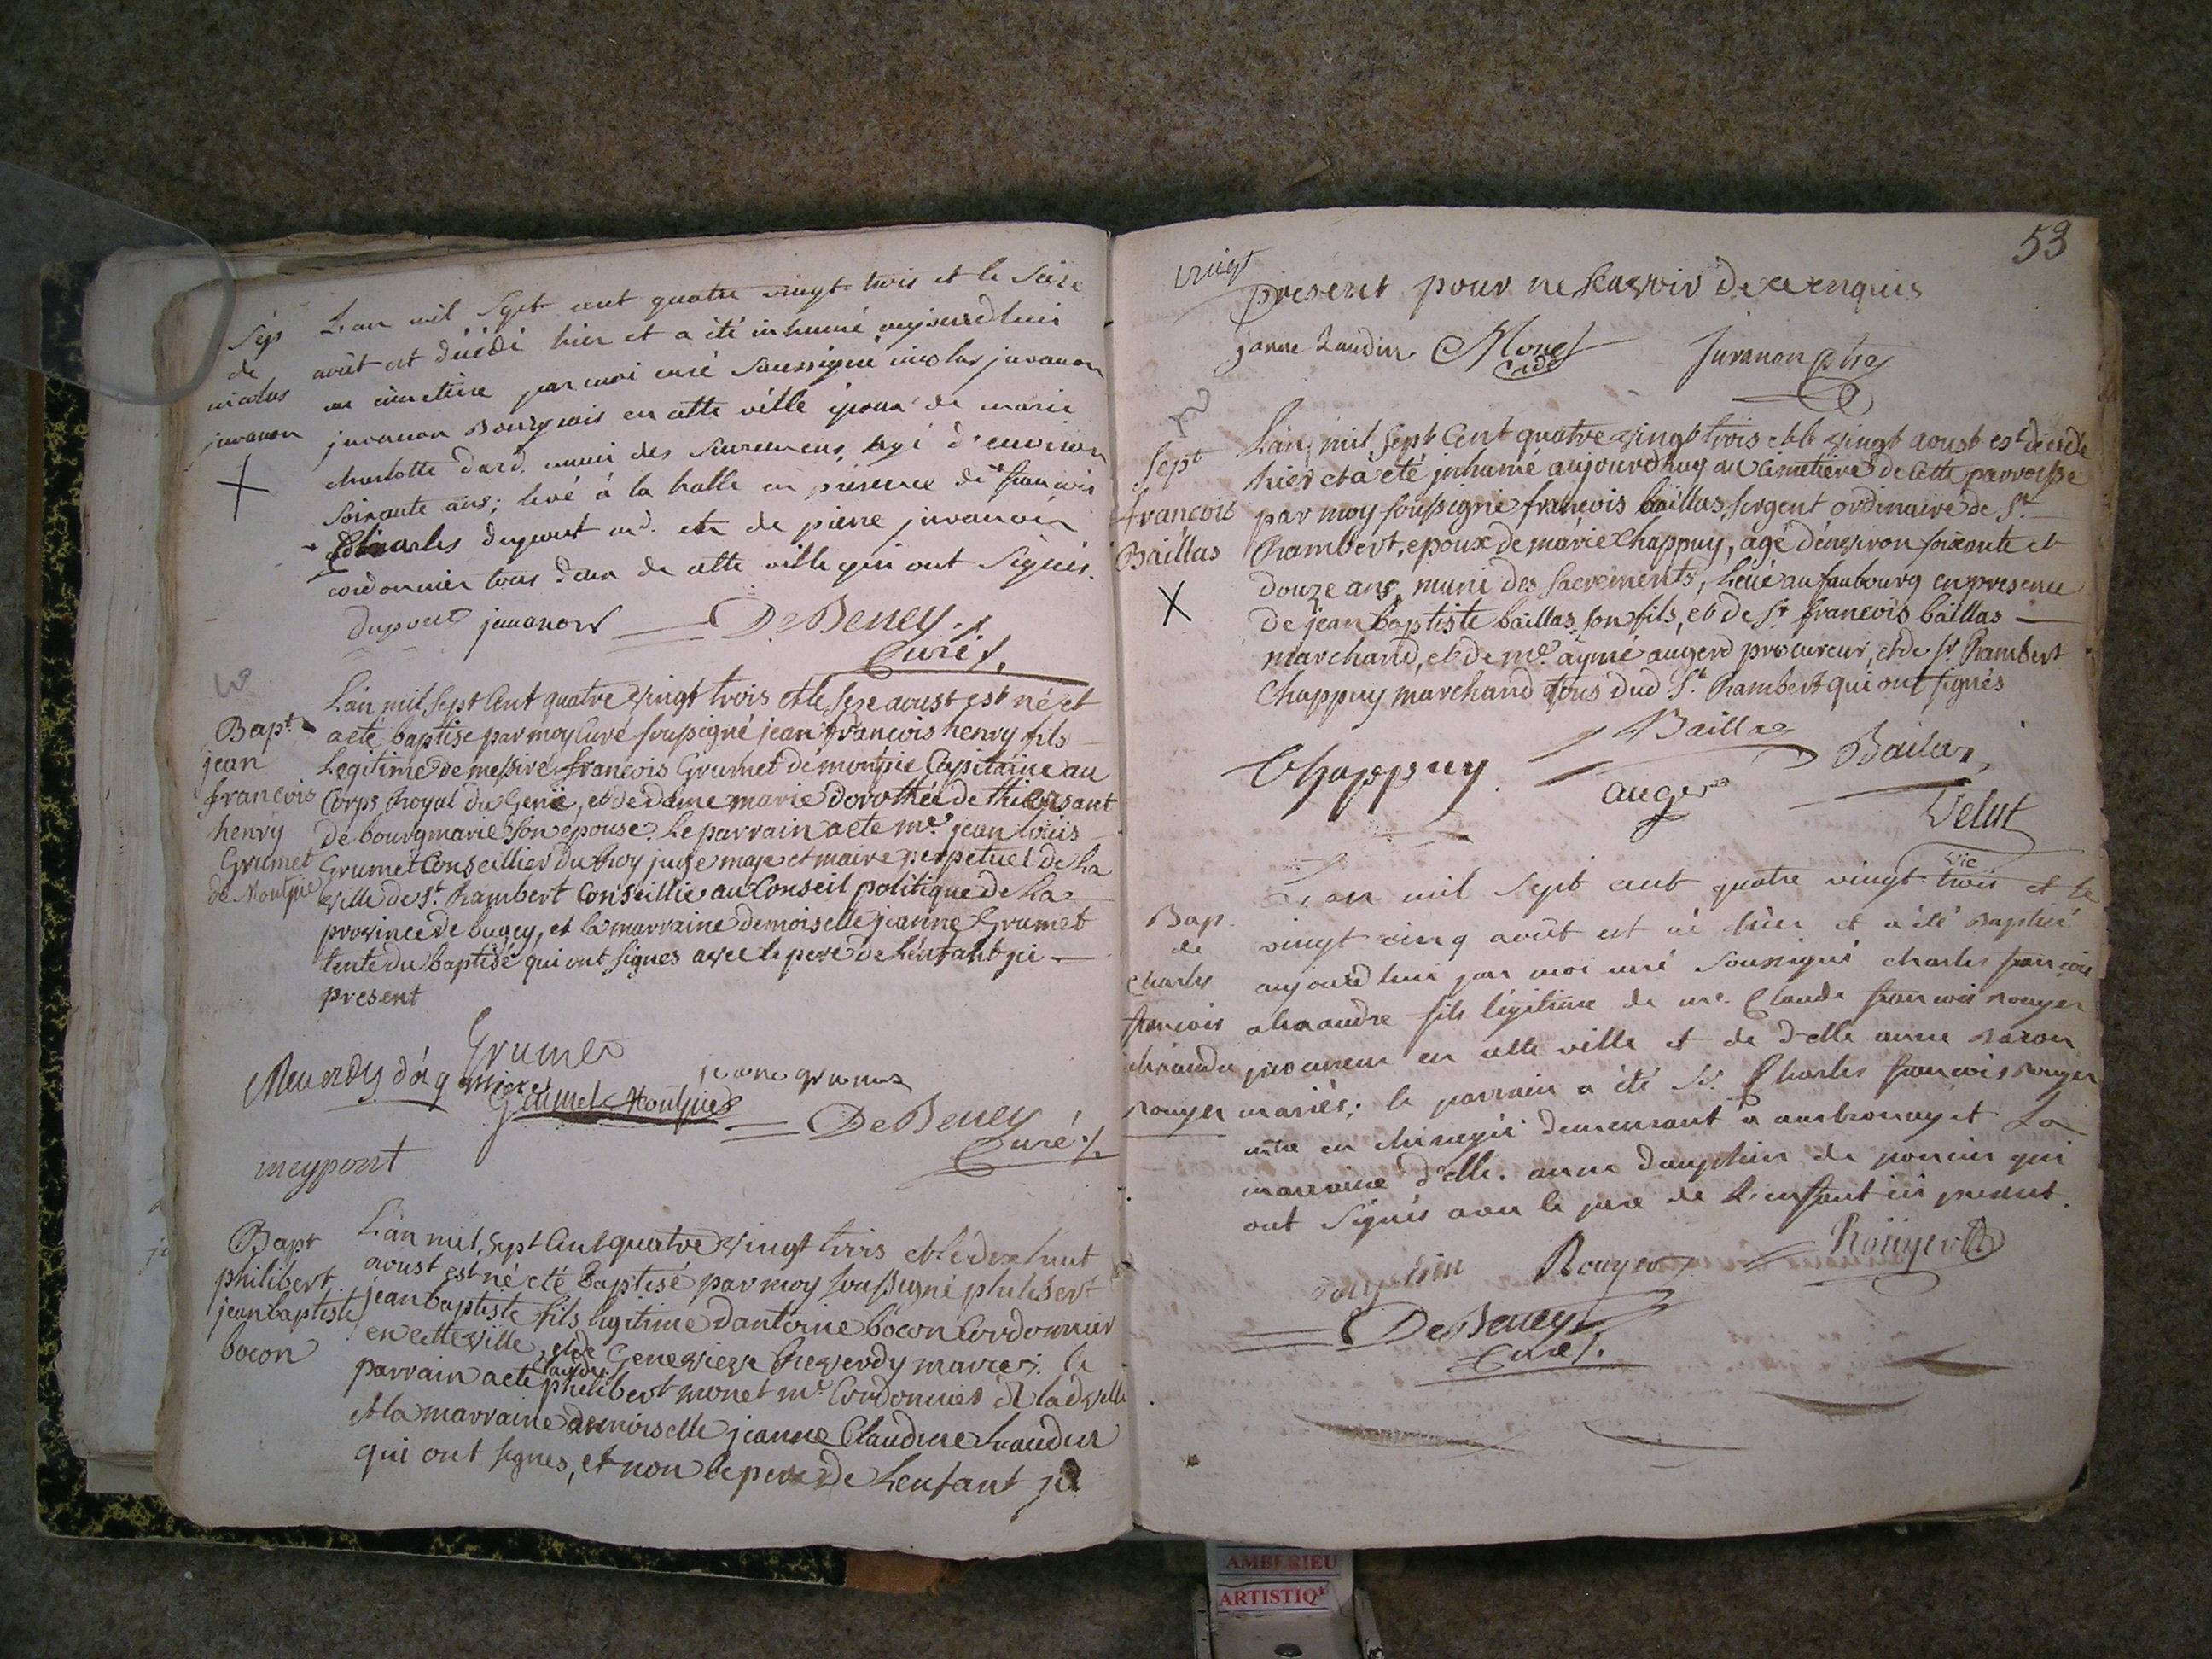 Sep
de
nicolas
juvanon
L'an mil sept cent quatre vingt-trois et le seize
août est décédé hier et a été inhumé aujourd'hui
au cimetière par moi curé soussigné nicolas juvanon
juvanon Bourgeois en cette ville époux de marie
charlotte dard, muni des sacremens, agé d'environ
soixante ans; levé à la halle en présence de françois
Charles dupont md. et de pierre juvanon
cordonnier tous deux de cette ville qui ont signés.
dupont juvanon DeBeney
Curé
Bapt
jean
francois
henry
Grumet
de Montpie
L'an mil sept Cent quatre vingt trois et le seze aoust est né et
a eté baptise par moy Curé soussigné jean francois henry fils
Legitime de messire francois Grumet de montpie Capitaine au
Corps Royal du Genie, et de dame marie dorothée de thiersant
de bourgmarie son epouse. Le parrain a ete me. jean louis
Grumet Conseillier du Roy juge maje et maire perpetuel de La
ville de St. Rambert Conseillie au Conseil politique de La
province de bugey, et la marraine demoiselle jeanne Grumet
tente du baptisé qui ont signes avec le pere de L'enfant ji
present
Grumet
jeanne grumet
Grumet Montpié
DeBeney
Curé
meypont
Bapt
philibert
jean baptiste
bocon
L'an mil sept Cent quatre vingt trois et le dix huit
aoust est né eté Baptisé par moy soussigné philibert
jean baptiste fils legitime d'antoine bocon Cordonnier
en cette ville, et de Genevieve Reverdy maries. le
parrain a eté claude philibert monet me Cordonnier de lad ville
et la marraine demoiselle jeanne Claudine Laudin
qui ont signes, et non le pere de L'enfant ji
53
vingt
present pour ne scavoir de ce enquis
janne Laudin Monet
Cadet
Juvanon ptre
Sept
francois
Baillas
L'an mil sept Cent quatre vingt trois et le vingt aoust est decedé
hier et a eté jnhumé aujourdhuy au Cimetiere de Cette parroisse
par moy soussigné francois baillas, sergent ordinaire de St
Rambert, epoux de marie Chappuy, agé d'environ soixante et
douze ans, muni des sacrements, Levé au faubourg en presence
de jean baptiste baillas son fils, et de Sr francois baillas
marchand, et de me. aymé augerd procureur, et de Sr Rambert
Chappuy marchand tous dud St. Rambert qui ont signés
Baillas
Chappuy
Auger
Bailas
Velut
vic
Bap.
de
Charles
françois
alexandre
rouyer
L'an mil sept cent quatre vingt-trois et le
vingt cinq août est né hier et a été Baptisé
aujourd'hui par moi curé soussigné charles françois
alexandre fils légitime de me. Claude françois rouyer
procureur en cette ville et de delle anne Baron
mariés; le parrain a été Sr. Charles françois rouyer
mtre en chirurgie demeurant à ambronay et La
marraine delle. anne dauphin de poncin qui
ont signés avec le pere de L'enfant ici présent.
Dauphin Rouyer Rouyer
DeBeney
Curé
AMBERIEU
ARTISTIQ